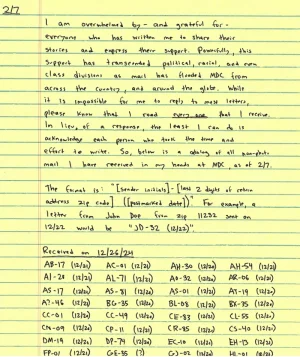 2/7
I am overwhelmed by - and grateful for -
everyone who has written me to share their
stories and express their support. Powerfully, this
support has transcended political, racial, and even
class divisions as mail has flooded MDC from
across the country, and around the globe. While
it is impossible for me to reply to most letters,
please know that I read every one that I receive.
In lieu of a response, the least I can do is
acknowledge each person who took the time and
effort to write. So, below is a catalog of all
mail I have received in my hands at MDC, as of 2/7.
The format is: "[sender initials]-[last 2 digits of return
address zip code] ([postmarked date])" For example, a
letter from John Doe from zip 11232 sent on
12/22 would be "JD-32 (12/22)".
Received on 12/26/24
AB-17 (12/21) AC-01 (12/21) AH-30 (12/21) AH-54 (12/21)
AJ-20 (12/21) AL-71 (12/21) AO-32 (12/21) AR-06 (12/21)
AS-17 (12/21) AS-81 (12/21) AS-01 (12/21) AT-19 (12/21)
A?-46 (12/21) BG-35 (12/21) BL-08 (12/21) BX-75 (12/21)
CC-01 (12/21) CC-49 (12/21) CE-83 (12/21) CL-55 (12/21)
CM-09 (12/21) CP-11 (12/21) CR-85 (12/21) CS-40 (12/21)
DM-19 (12/21) DP-79 (12/21) EC-10 (12/21) EH-13 (12/21)
FP-01 (12/21) GE-35 (?) GJ-02 (12/21) (12/21)